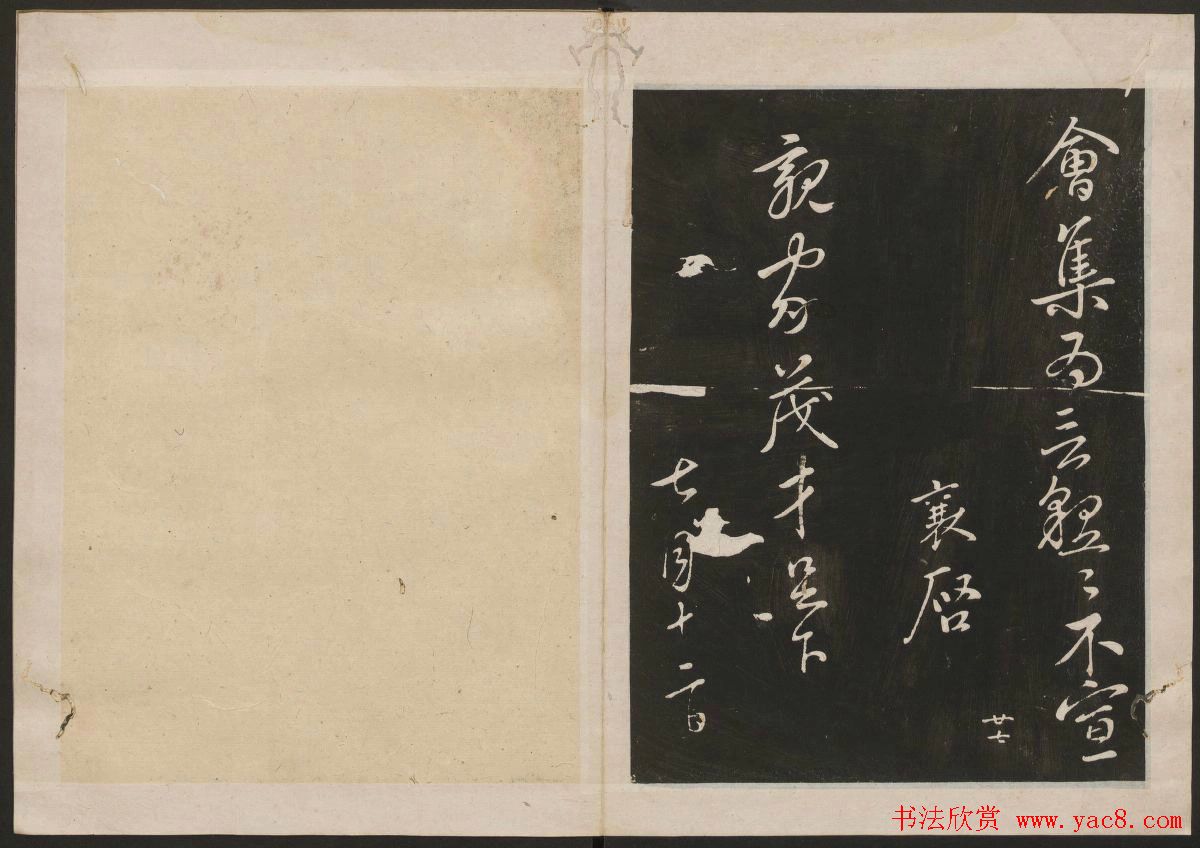 會集為言不宣
襄啓
廿七
親家茂才足下
七月十二日
书法欣赏 www.yac8.com